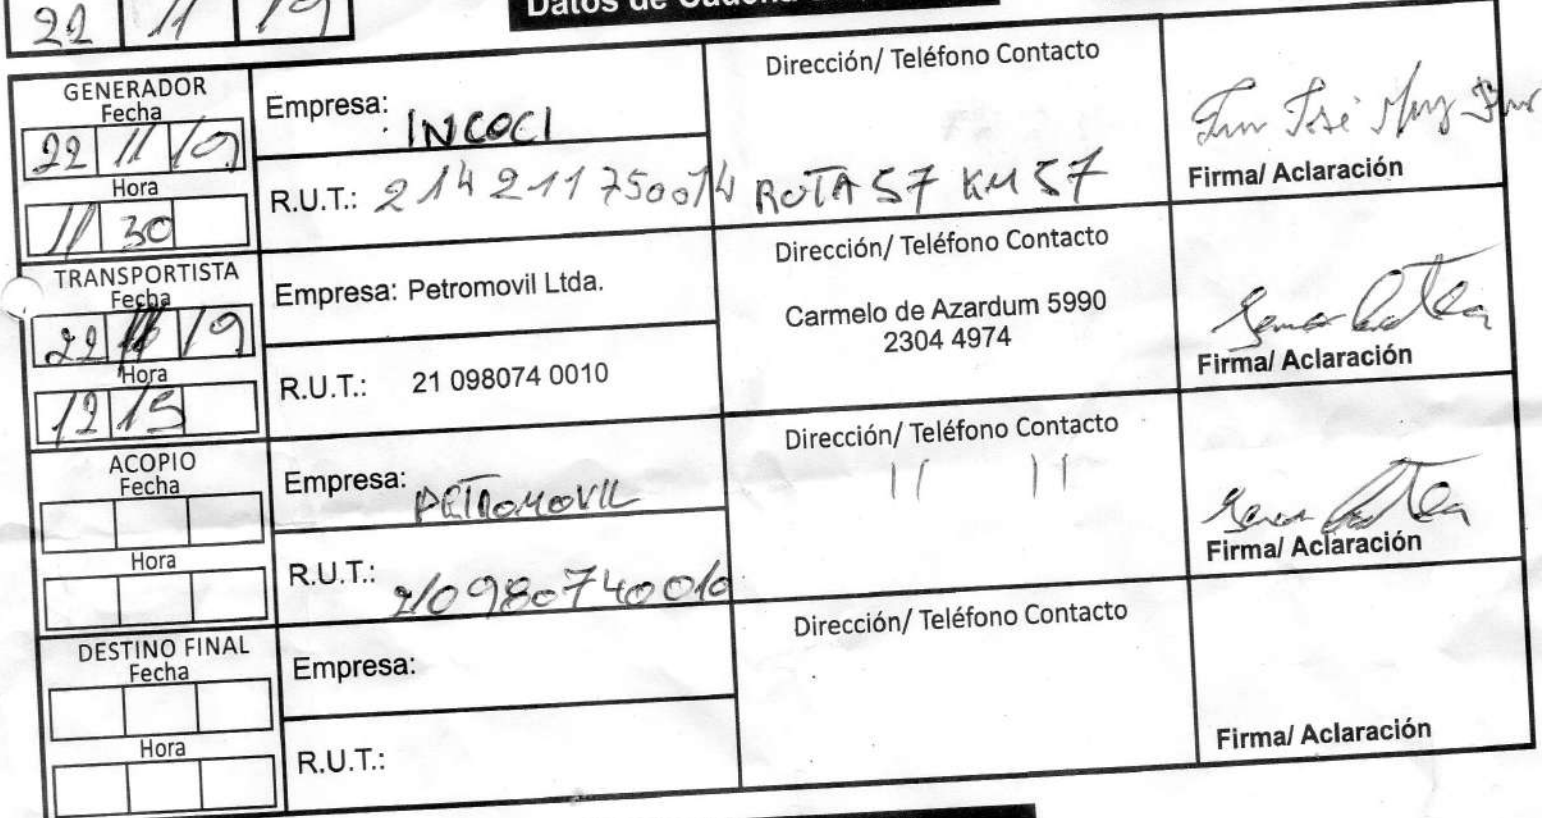 22 11 19
Datos de
GENERADOR
Fecha
22 11 19
Hora
11 30
Empresa: INCOCI
R.U.T.: 214211750014
Dirección/ Teléfono Contacto
RUTA 57 KM 57
Firma/ Aclaración
TRANSPORTISTA
Fecha
22 11 19
Hora
12 15
Empresa: Petromovil Ltda.
R.U.T.: 21 098074 0010
Dirección/ Teléfono Contacto
Carmelo de Azardum 5990
2304 4974
Firma/ Aclaración
ACOPIO
Fecha
Hora
Empresa: PETROMOVIL
R.U.T.: 210980740010
Dirección/ Teléfono Contacto
11 11
Firma/ Aclaración
DESTINO FINAL
Fecha
Hora
Empresa:
R.U.T.:
Dirección/ Teléfono Contacto
Firma/ Aclaración